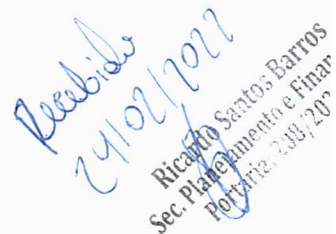 Recebido
24/02/2022
Ricardo Santos Barros
Sec. Planejamento e Finan
Portaria.